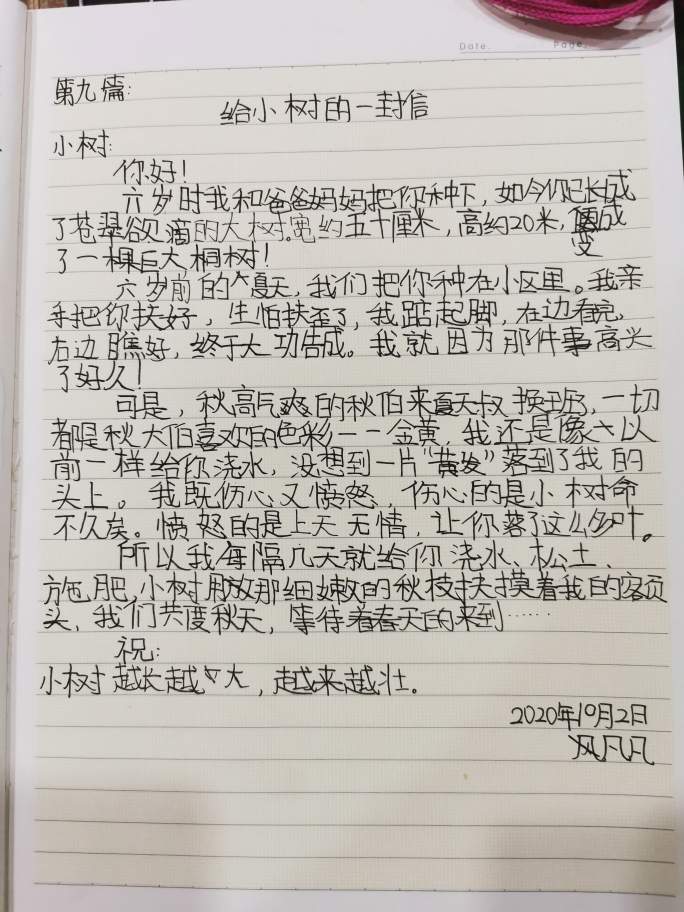 Date. Page.
第九篇:
给小树的一封信
小树:
你好!
六岁时我和爸爸妈妈把你种下,如今你已长成
了苍翠欲滴的大树。宽约五十厘米,高约20米,成
变
了一棵巨大桐树!
六岁前的夏天,我们把你种在小区里。我亲
手把你扶好,生怕扶歪了,我踮起脚,左边看完
右边瞧好,终于大功告成。我就因为那件事高兴
了好久!
可是,秋高气爽的秋伯来夏天叔换班了,一切
都是秋大伯喜欢的色彩——金黄,我还是像以
前一样给你浇水,没想到一片“黄发”落到了我的
头上。我既伤心又愤怒,伤心的是小树命
不久矣。愤怒的是上天无情,让你落了这么多叶。
所以我每隔几天就给你浇水、松土、
施肥,小树用放那细嫩的秋枝抚摸着我的额
头,我们共度秋天,等待着春天的来到……
祝:
小树越长越大,越来越壮。
2020年10月2日
风凡凡